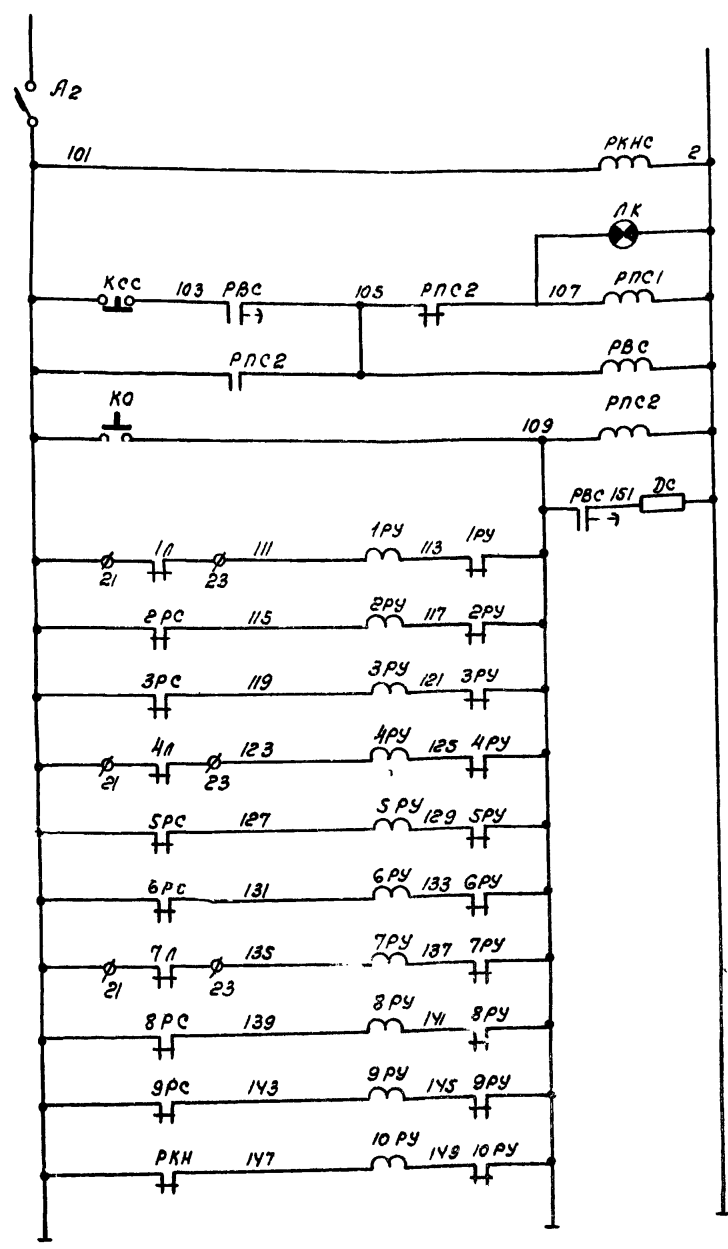 А2
101 РКНС 2
ЛК
КСС 103 РВС 105 РПС2 107 РПС1
РПС2 РВС
КО 109 РПС2
РВС 151 ДС
21 1Л 23 111 1РУ 113 1РУ
2РС 115 2РУ 117 2РУ
3РС 119 3РУ 121 3РУ
21 4Л 23 123 4РУ 125 4РУ
5РС 127 5РУ 129 5РУ
6РС 131 6РУ 133 6РУ
21 7Л 23 135 7РУ 137 7РУ
8РС 139 8РУ 141 8РУ
9РС 143 9РУ 145 9РУ
РКН 147 10РУ 149 10РУ